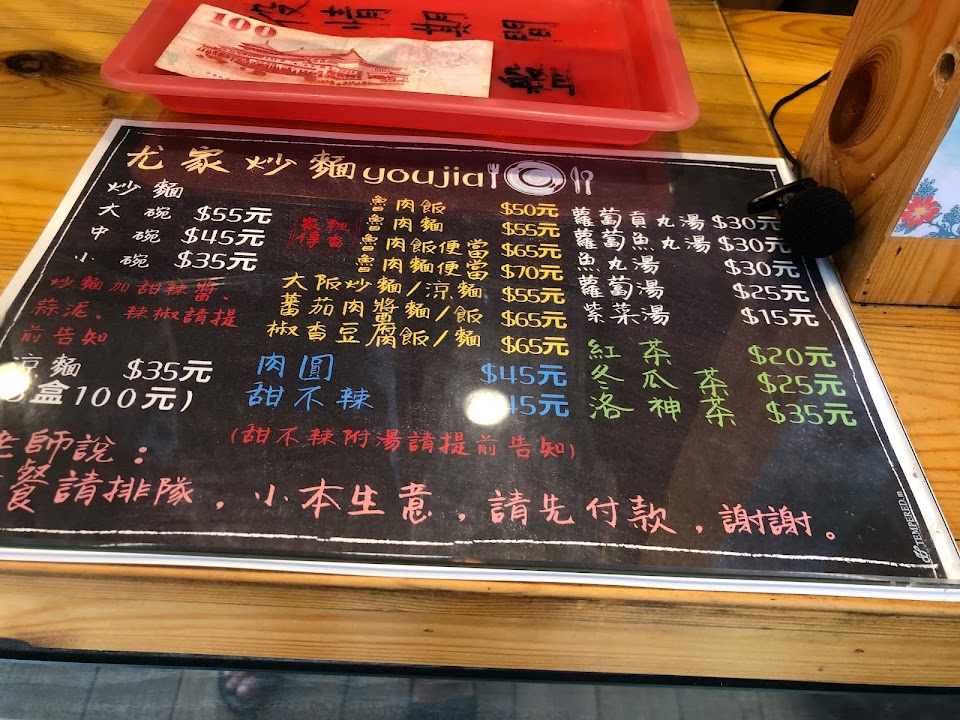 100
疫情期間
尤家炒麵youjia
炒麵
大碗 $55元
中碗 $45元
小碗 $35元
炒麵加甜辣醬、
蒜泥、辣椒請提
前告知
涼麵 $35元
盒100元)
魯肉飯 $50元
魯肉麵 $55元
魯肉飯便當 $65元
魯肉麵便當 $70元
大阪炒麵/涼麵 $55元
蕃茄肉醬麵/飯 $65元
椒香豆腐飯/麵 $65元
肉圓 $45元
甜不辣 45元
(甜不辣附湯請提前告知)
蘿蔔貢丸湯 $30元
蘿蔔魚丸湯 $30元
魚丸湯 $30元
蘿蔔湯 $25元
紫菜湯 $15元
紅茶 $20元
冬瓜茶 $25元
洛神茶 $35元
老師說：
餐請排隊，小本生意，請先付款，謝謝。
TEMPERED